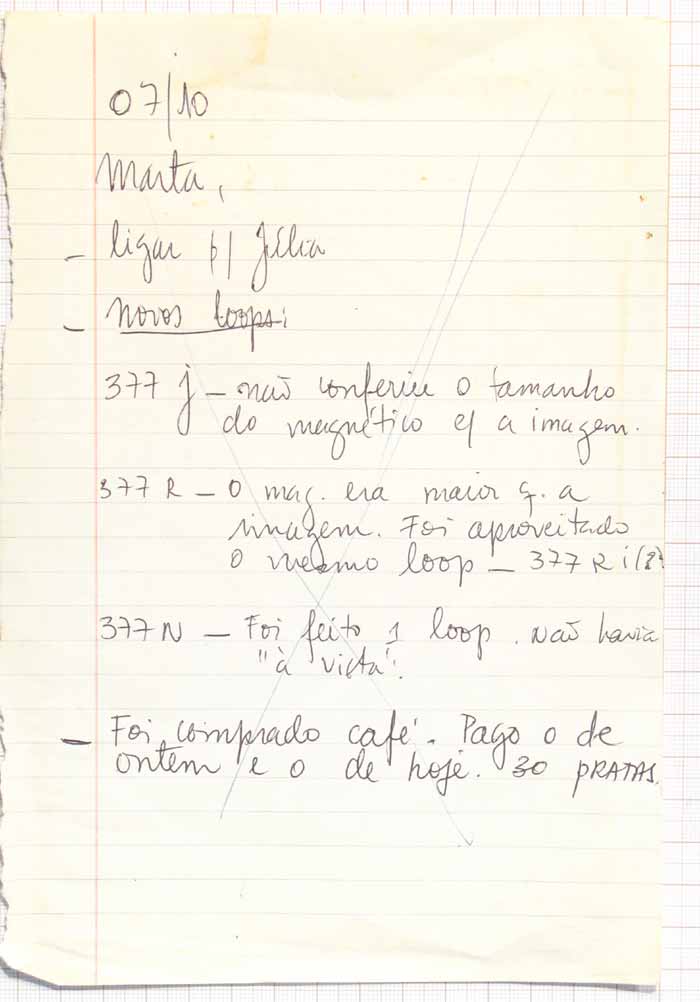 07/10
Marta,
- ligar p/ Júlia
- novos loops:
377 j - não conferiu o tamanho
do magnético c/ a imagem.
377 R - O mag. era maior q. a
imagem. Foi aproveitado
o mesmo loop - 377 R i (?)
377 N - Foi feito 1 loop. Não havia
"à vista".
- Foi comprado café. Pago o de
ontem e o de hoje. 30 PRATAS.